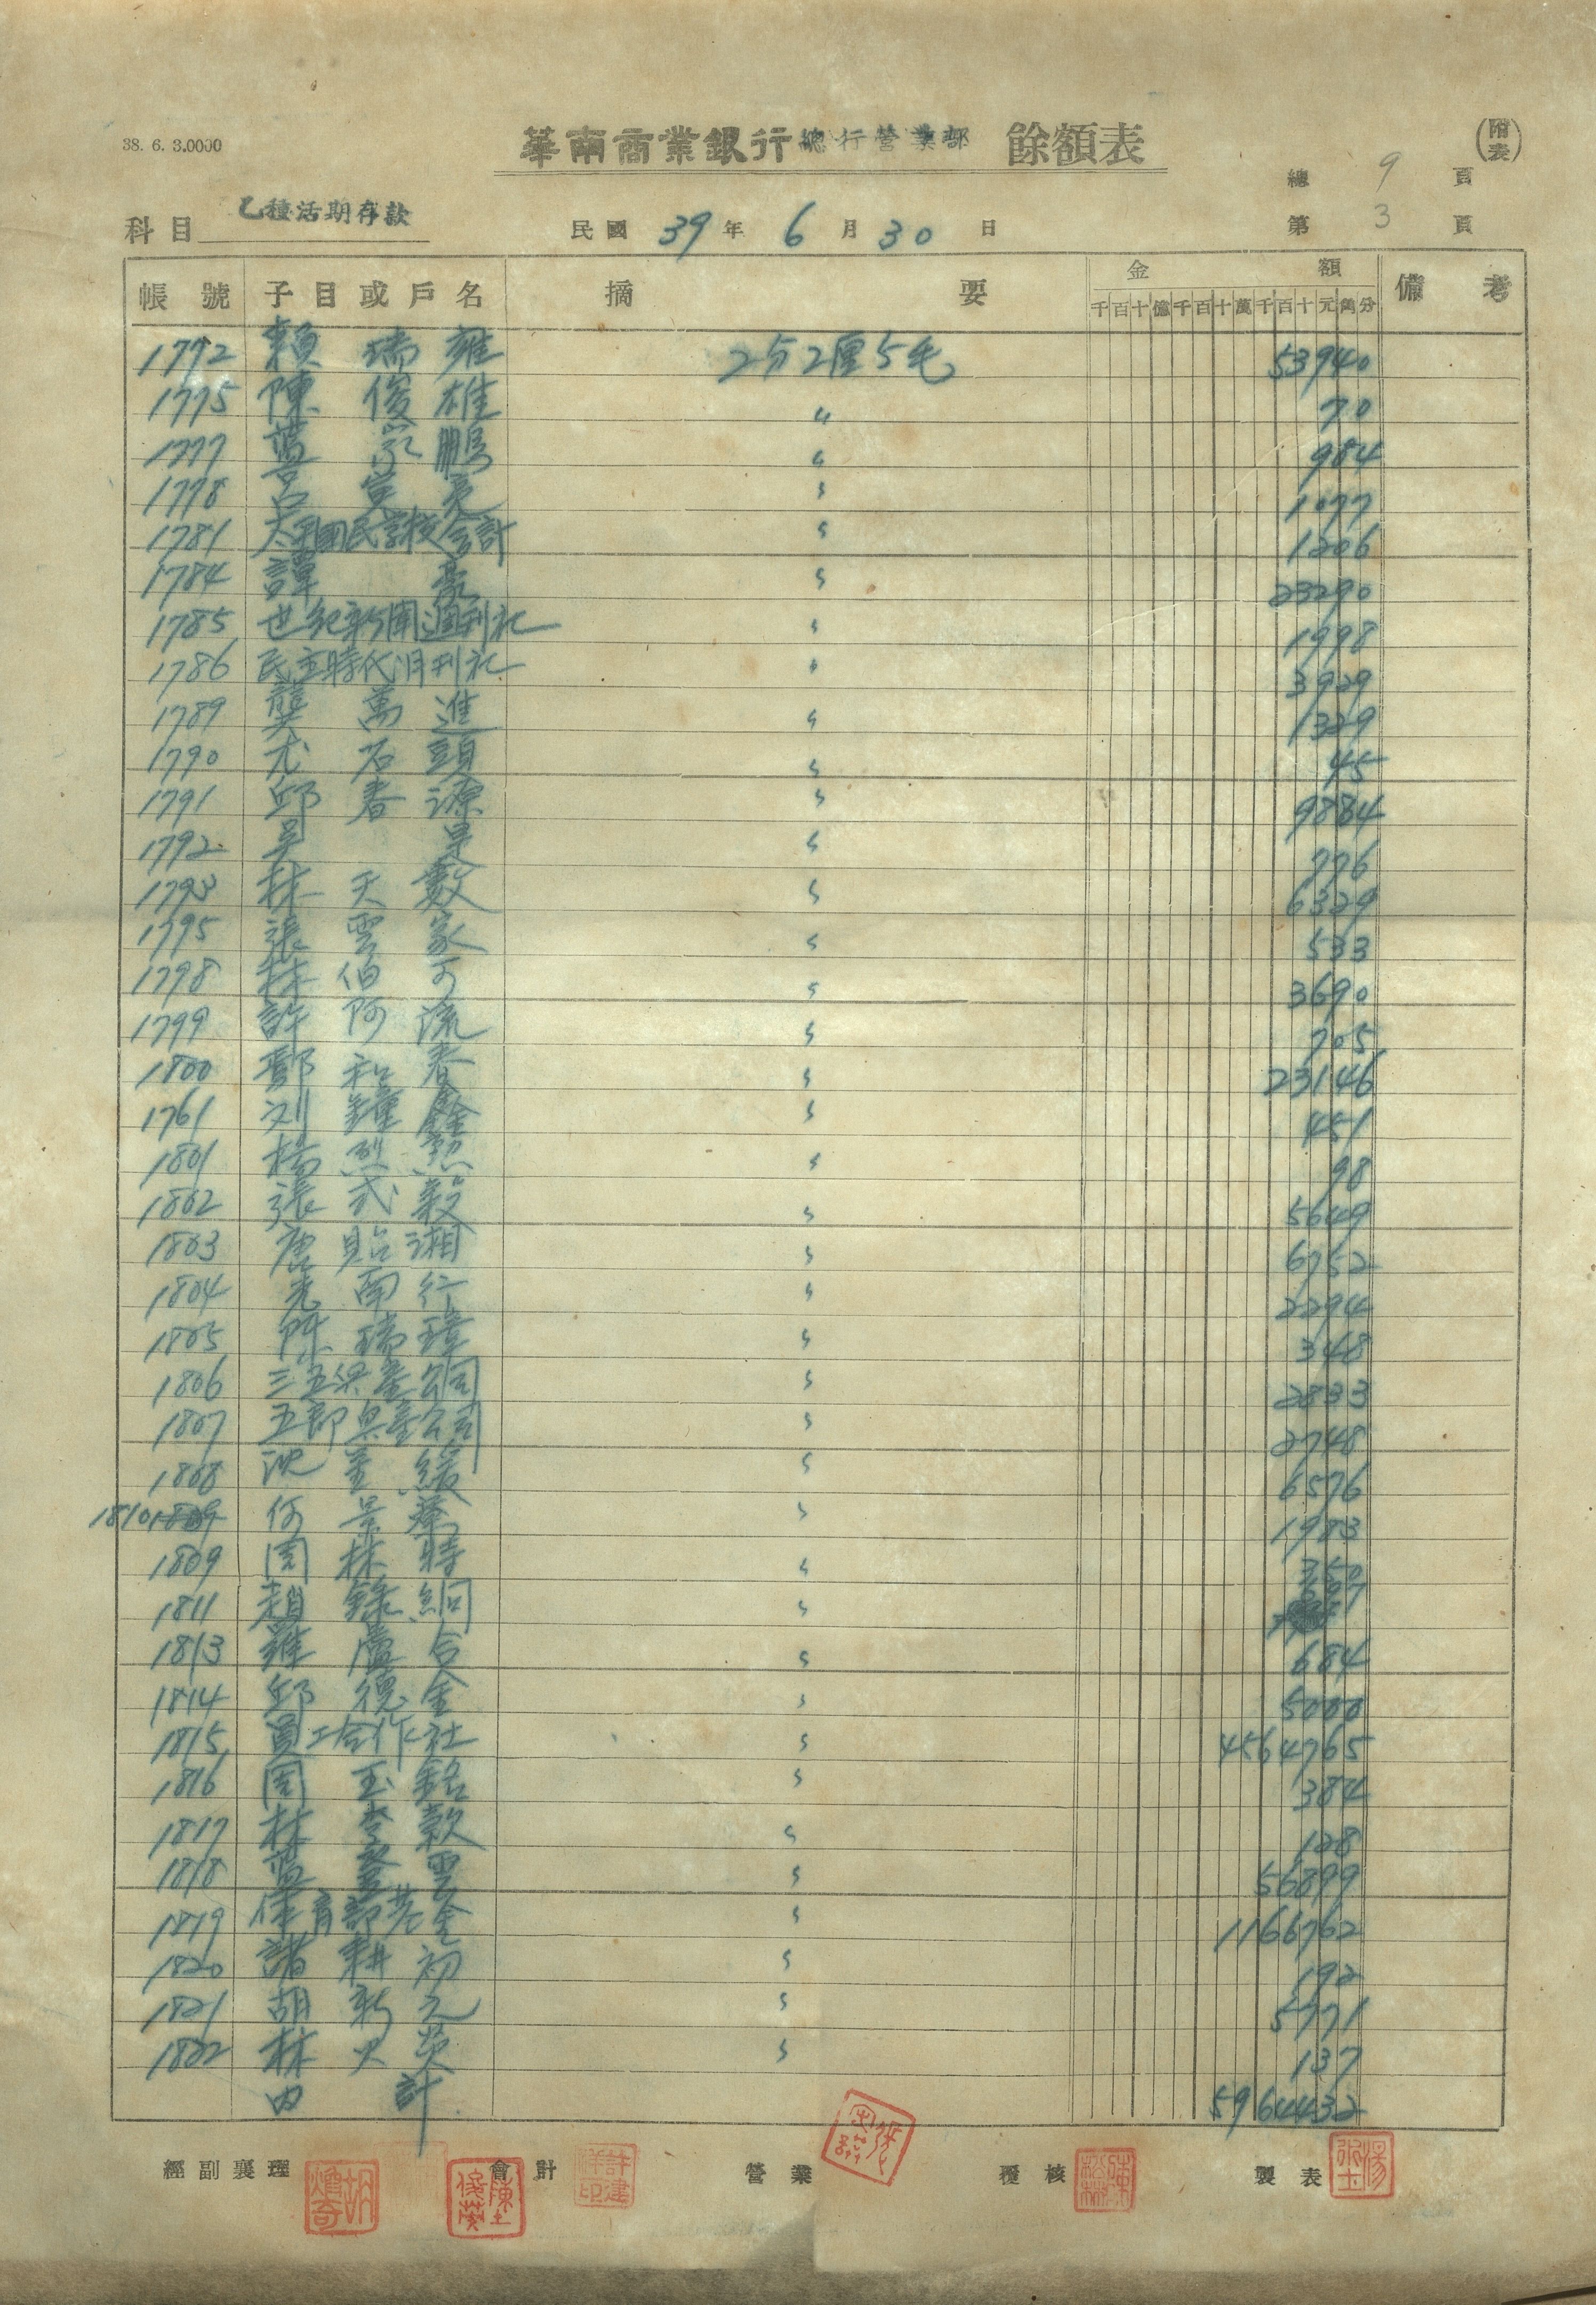 38. 6. 3.0000
華南商業銀行總行營業部 餘額表 (附表)
總 9 頁
科目 乙種活期存款 民國 39 年 6 月 30 日 第 3 頁
帳號 子目或戶名 摘要 金額 備考
千百十億千百十萬千百十元角分
1772 賴瑞雍 2分2厘5毛 53940
1775 陳俊雄 〃 70
1777 藍 鵬 〃 984
1778 呂 〃 1077
1781 太平國民學校会計 〃 1206
1784 譚 〃 23290
1785 世紀新聞週刊社 〃 1998
1786 民主時代月刊社 〃 3929
1789 龔萬進 〃 1329
1790 尤石頭 〃 45
1791 邱春源 〃 9884
1792 吳 〃 776
1793 林天數 〃 6329
1795 張雲家 〃 533
1798 林伯可 〃 3690
1799 許阿流 〃 705
1800 鄞和春 〃 23146
1761 刘鐘鑫 〃 451
1801 楊烈 〃 98
1802 張武毅 〃 5649
1803 唐貽湘 〃 6752
1804 光南行 〃 2294
1805 陳瑞璋 〃 348
1806 三五 産公司 〃 2833
1807 五郎 産公司 〃 2748
1808 沈 緩 〃 6576
1810 1809 何景 〃 1983
1809 周林特 〃 350
1811 趙錄絅 〃
1813 羅盧合 〃 684
1814 邱德金 〃 5000
1815 員工合作社 〃 4564765
1816 周玉銘 〃 384
1817 林 款 〃 128
1818 藍 雲 〃 56899
1819 保育部基金 〃 1166762
1820 諸耕初 〃 192
1821 胡新元 〃 5771
1822 林火英 〃 137
內計 5964432
經副襄理 會計 營業 覆核 製表